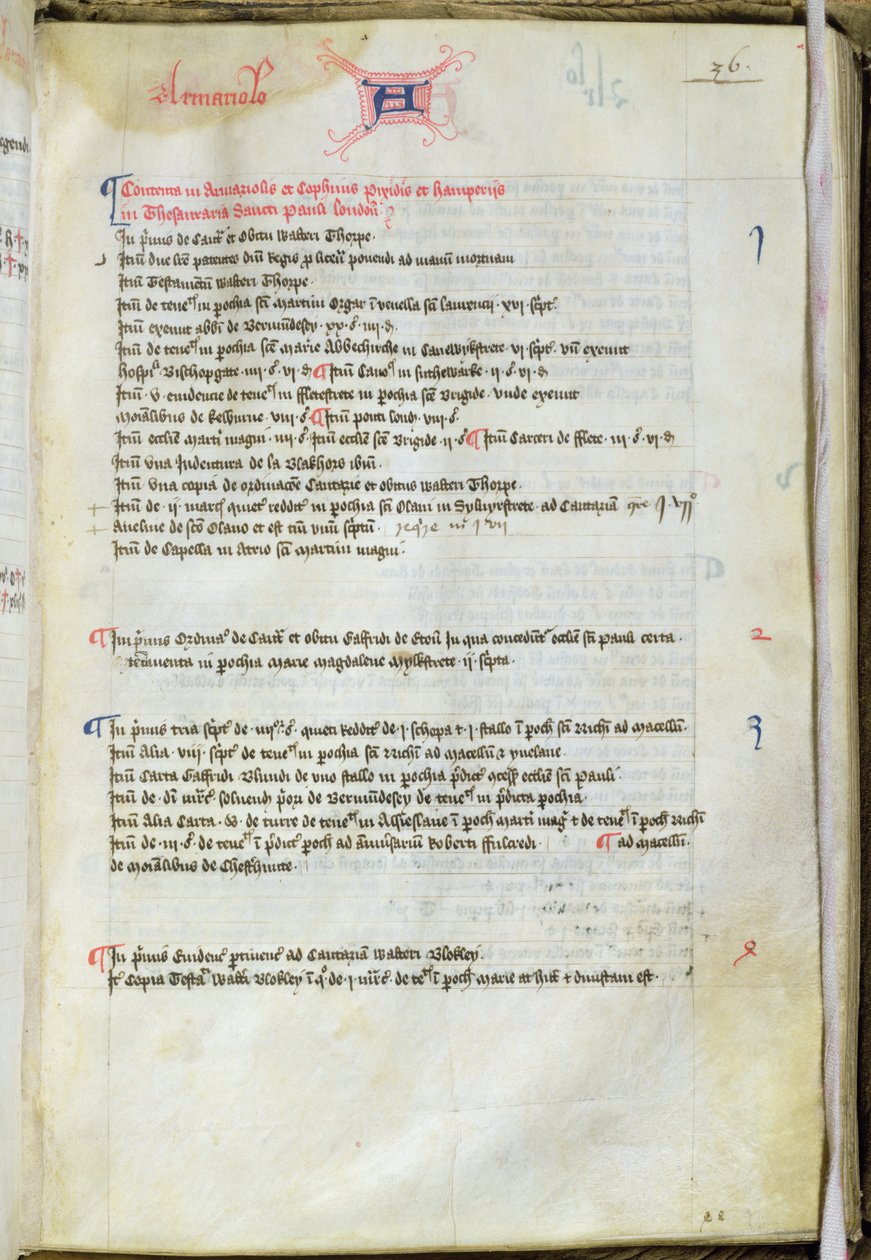 Armariolo A
36.
Contenta in Armariolis et Cophinis Pixidis et hamperijs
in Thesauraria Sancti Pauli london
In p'mis de Cant' et Obitu Walteri Thorpe.
Itm due lre patentes dni Regis p licen ponendi ad manu mortuam
Itm Testamentu Walteri Thorpe.
Itm de ten in pochia sci Martini Orgar i venella sci laurencii . xvi . scpt.
Itm exeunt abbi de Bermudesey . xx . s . iiii . d.
Itm de ten in pochia sce Marie Abbechirche in Canewykstrete . vi . scpt . vn exeunt
hospi Bischopgate iiii . s . vi . d ¶ Itm Cano in suthewarke . ii . s . vi . d
Itm . v . euidencie de ten in ffletestrete in pochia sce Brigide . vnde exeunt
moialibus de kelburne . viii . s . ¶ Itm ponti lond . viii . s .
Itm ecclie Marti magni . iiii . s . Itm ecclie sce Brigide . ii . s ¶ Itm Carceri de fflete . iii . s . vi . d
Itm vna Indentura de la Blakhors ibm .
Itm vna copia de ordinacoe Cantarie et obitus Walteri Thorpe .
Itm de . ii . marc quiet reddit in pochia sci Olaui in Syluirstrete . ad Cantariam
Aueline de sco Olauo et est tm vnu scptu .
Itm de Capella in Atrio sci Martini magni .
1
¶ In p'mis Ordina de Cant' et obitu Galfridi de Eton In qua concedunt' ecclie sci Pauli certa .
tenementa in pochia Marie Magdalene Mylkstrete . ii . scpta .
2
¶ In p'mis tria scpt de . iiii . s . quieti Redditus de . i . schopa & . i . stallo i poch sci Nichi ad Macellu .
Itm Alia . viii . scpt de ten in pochia sci Nichi ad Macellu & yuelane .
Itm Carta Galfridi Blundi de vno stallo in pochia pdict ecclie sci Pauli .
Itm de . di mrc soluend pori de Bermudesey de ten in pdicta pochia .
Itm Alia Carta . W . de turre de ten in Assieslane i poch Marti mag & de ten i poch Nichi
Itm de . iii . s . de ten i pdict poch ad anniusariu Roberti ffulcredi . ¶ ad Macellu .
de Moialibus de Chesthunte .
3
¶ In p'mis Euidenc ptinent ad Cantaria Walteri Blokley .
It Copia Testa Walti Blokley i q . de . i . mrc . de te i poch Marie at hill & diuisam est .
4